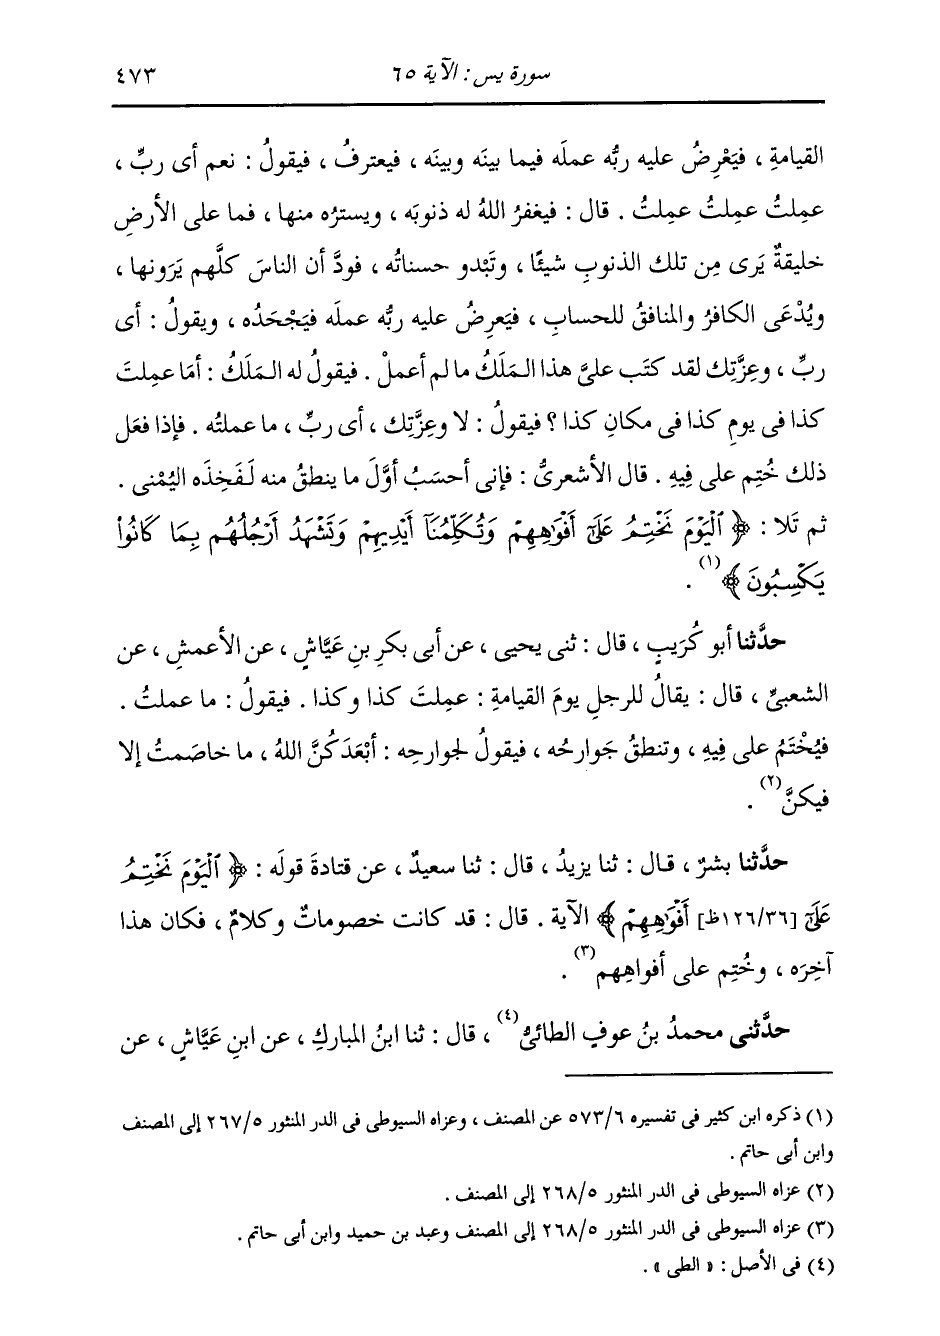 سورة يس : الآية ٦٥ ٤٧٣
القيامةِ ، فيَعْرِضُ عليه ربُّه عملَه فيما بينَه وبينَه ، فيعترفُ ، فيقولُ : نعم أى ربِّ ،
عمِلتُ عمِلتُ عمِلتُ . قال : فيغفرُ اللهُ له ذنوبَه ، ويسترُه منها ، فما على الأرضِ
خليقةٌ يَرى مِن تلك الذنوبِ شيئًا ، وتَبْدو حسناتُه ، فودَّ أن الناسَ كلَّهم يَرَونها ،
ويُدْعَى الكافرُ والمنافقُ للحسابِ ، فيَعرِضُ عليه ربُّه عملَه فيَجْحَدُه ، ويقولُ : أى
ربِّ ، وعِزَّتِك لقد كتَب علىَّ هذا المَلَكُ ما لم أعملْ . فيقولُ له المَلَكُ : أمَا عمِلتَ
كذا فى يومِ كذا فى مكانِ كذا ؟ فيقولُ : لا وعِزَّتِك ، أى ربِّ ، ما عملتُه . فإذا فعَل
ذلك خُتِم على فِيهِ . قال الأشعرىُّ : فإنى أحسَبُ أوَّلَ ما ينطقُ منه لَفَخِذَه اليُمْنى .
ثم تَلا : ﴿ ٱلْيَوْمَ نَخْتِمُ عَلَىٰٓ أَفْوَٰهِهِمْ وَتُكَلِّمُنَآ أَيْدِيهِمْ وَتَشْهَدُ أَرْجُلُهُم بِمَا كَانُوا۟
يَكْسِبُونَ ﴾(١) .
حدَّثنا أبو كُرَيبٍ ، قال : ثنى يحيى ، عن أبى بكرِ بنِ عَيَّاشٍ ، عن الأعمشِ ، عن
الشعبىِّ ، قال : يقالُ للرجلِ يومَ القيامةِ : عمِلتَ كذا وكذا . فيقولُ : ما عملتُ .
فيُخْتَمُ على فِيهِ ، وتنطقُ جَوارحُه ، فيقولُ لجوارحِه : أبْعَدَكُنَّ اللهُ ، ما خاصَمتُ إلا
فيكنَّ(٢) .
حدَّثنا بشرٌ ، قال : ثنا يزيدُ ، قال : ثنا سعيدٌ ، عن قتادةَ قولَه : ﴿ ٱلْيَوْمَ نَخْتِمُ
عَلَىٰٓ [١٢٦/٣٦ظ] أَفْوَٰهِهِمْ ﴾ الآية . قال : قد كانت خصوماتٌ وكلامٌ ، فكان هذا
آخِرَه ، وخُتِم على أفواهِهم(٣) .
حدَّثنى محمدُ بنُ عوفٍ الطائىُّ(٤) ، قال : ثنا ابنُ المباركِ ، عن ابنِ عَيَّاشٍ ، عن
(١) ذكره ابن كثير فى تفسيره ٥٧٣/٦ عن المصنف ، وعزاه السيوطى فى الدر المنثور ٢٦٧/٥ إلى المصنف
وابن أبى حاتم .
(٢) عزاه السيوطى فى الدر المنثور ٢٦٨/٥ إلى المصنف .
(٣) عزاه السيوطى فى الدر المنثور ٢٦٨/٥ إلى المصنف وعبد بن حميد وابن أبى حاتم .
(٤) فى الأصل : « الطى » .